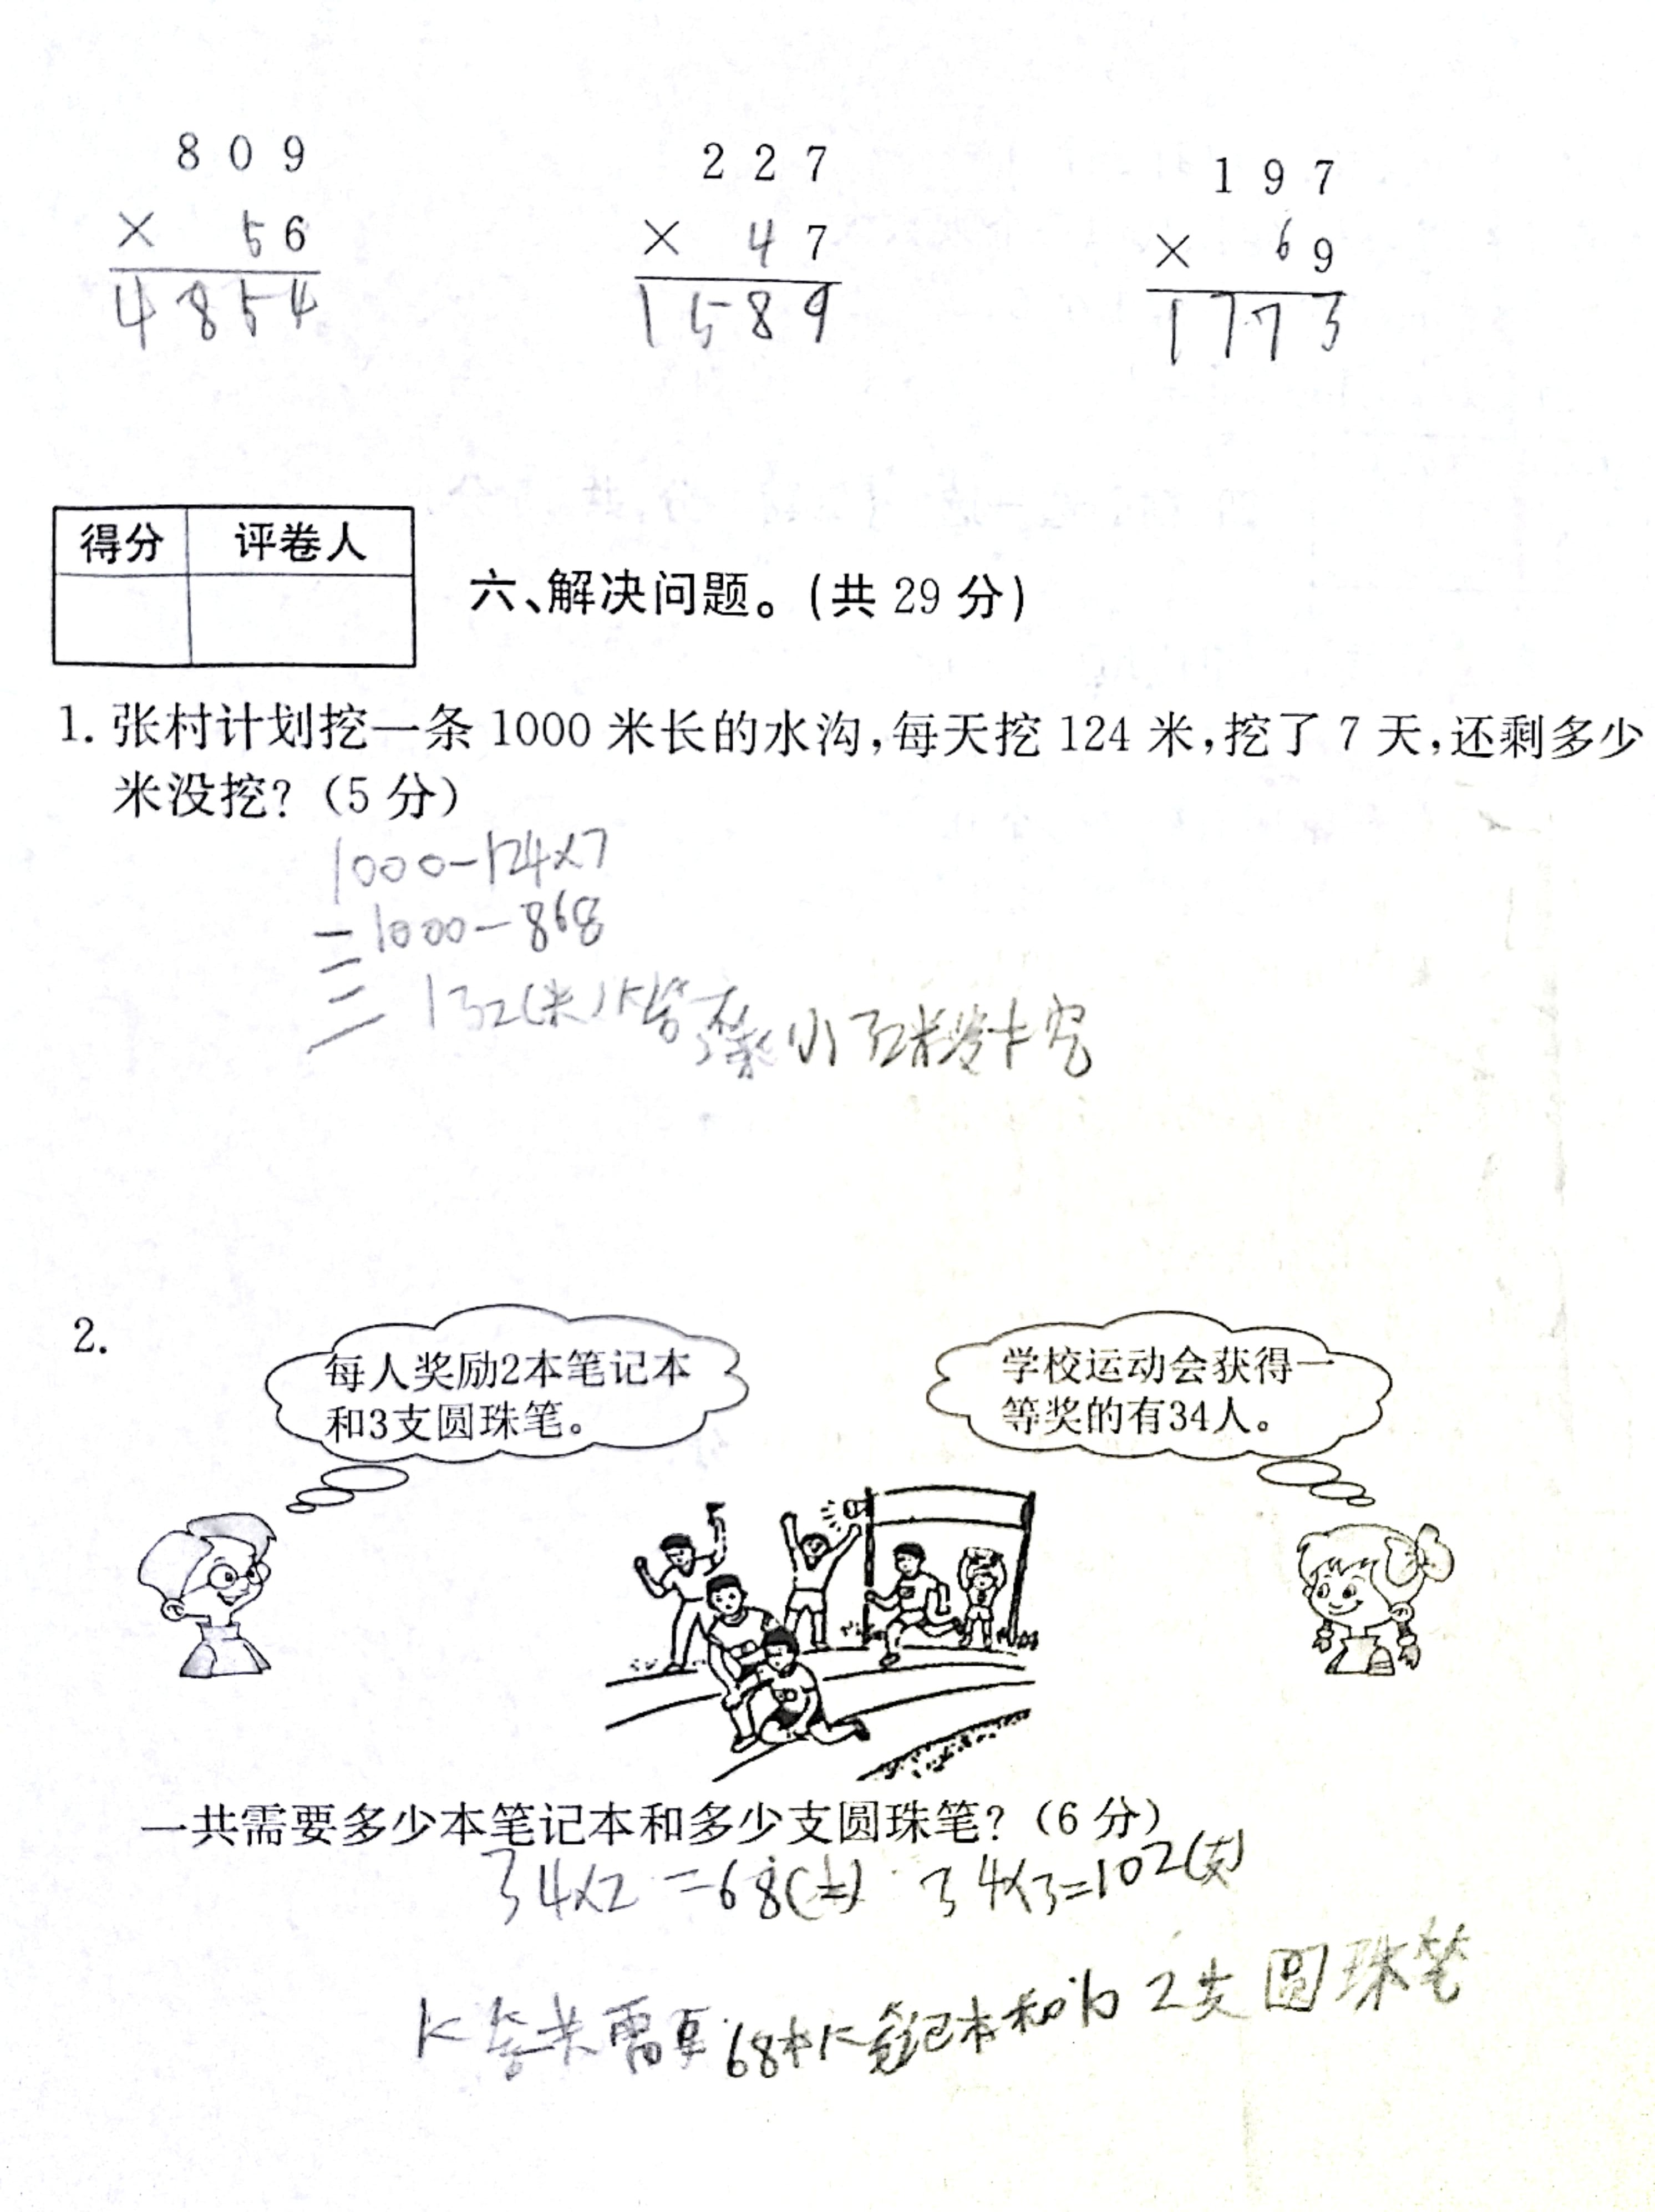 809 227 197
× 56 × 47 × 69
4854 1589 1773
得分 评卷人
六、解决问题。(共 29 分)
1. 张村计划挖一条 1000 米长的水沟,每天挖 124 米,挖了 7 天,还剩多少
米没挖?(5 分)
1000-124×7
=1000-868
= 132(米)
2.
每人奖励2本笔记本
和3支圆珠笔。
学校运动会获得一
等奖的有34人。
一共需要多少本笔记本和多少支圆珠笔?(6 分)
34×2=68(本) 34×3=102(支)
答 需要68本笔记本和102支圆珠笔